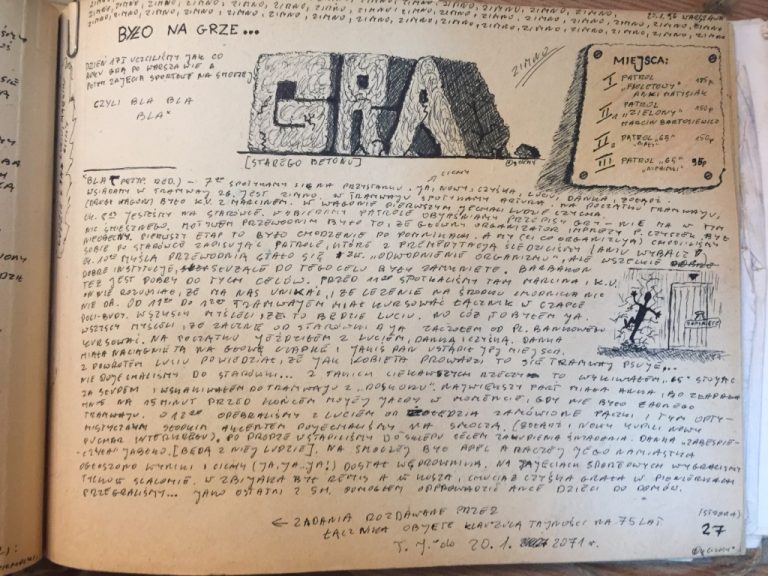 ZIMNO, ZIMNO, ZIMNO, ZIMNO, ZIMNO, ZIMNO, ZIMNO, ZIMNO, ZIMNO
ZIMNO, ZIMNO, ZIMNO, ZIMNO, ZIMNO, ZIMNO, ZIMNO, ZIMNO, ZIMNO
BYŁO NA GRZE...
DZIEŃ UCZCILIŚMY JAK CO
ROKU GRĄ PO WARSZAWIE A
POTEM ZAJĘCIA SPORTOWE NA SMOCZEJ
CZYLI BLA BLA
BLA*
GRA
[STAREGO BETONU]
ZIMNO
MIEJSCA:
I PATROL
"FIOLETOWY"
ANKI MATYSIAK
II PATROL
"ZIELONY"
MARCIN BARTOSIEWICZ
150p
II PATROL "65"
150p
III PATROL "65"
95p
CICHY
*BLA SPOTKAMY SIĘ NA PRZYSTANKU. JA, NOWY, CZYŚKA, LUCIU, DANKA,
WSIADAMY W TRAMWAJ 26. JEST ZIMNO. W TRAMWAJU SPOTYKAMY ARTURA. NA POCZĄTKU TRAMWAJU,
(DRUGI WAGON) BYŁO K.U. Z MARCINEM. W WAGONIE PIERWSZYM JECHALI LUDZIE CZYŚKA
JESTEŚMY NA STARÓWCE. WYBIERAMY PATROLE OBJAŚNIAMY PRZEBIEG GRY - NIE MA W TYM
NIC ŚMIESZNEGO. MOTYWEM PRZEWODNIM BYŁO TO, ŻE GŁÓWNY ORGANIZATOR IMPREZY P. CZYŻEW, BYŁ
NIEOBECNY. PIERWSZY ETAP TO BYŁO CHODZENIE PO POMNIKACH. A MY (CO ORGANIZUJĄ) CHODZILIŚMY
SOBIE PO STARÓWCE ZAPISUJĄC PATROLE, KTÓRE Z PREMEDYTACJĄ ŚLEDZILIŚMY
MYŚLĄ PRZEWODNIĄ STAŁO SIĘ "ODWODNIENIE ORGANIZMU", ALE WSZELKIE
DOBRE INSTYTUCJE, SŁUŻĄCE DO TEGO CELU BYŁY ZAMKNIĘTE. BARBAKAN
TEŻ JEST DOBRY DO TYCH CELÓW. PRZED SPOTKALIŚMY TAM MARCINA I K.U.
NIE ROZUMIAŁ, ŻE MA NAS UNIKAĆ, ŻE ŁAŻENIE OD PRZODU I MRUGANIE NIC
NIE DA. OD DO TRAMWAJEM MIAŁ KURSOWAĆ ŁĄCZNIK W CZAPCE
WSZYSCY MYŚLELI, ŻE TO BĘDZIE LUCIU. NO CÓŻ TO BYŁEM JA.
WSZYSCY MYŚLELI, ŻE ZACZNĘ OD STARÓWKI A JA ZACZĄŁEM OD PL. BANKOWEGO
KURSOWAĆ. NA POCZĄTKU JEŹDZIŁEM Z LUCIEM, DANKĄ I CZYŚKĄ. DANKA
MIAŁA NACIĄGNIĘTĄ NA GŁOWĘ CZAPKĘ I JAKIŚ PAN USTĄPIŁ JEJ MIEJSCA.
Z POWROTEM LUCIU POWIEDZIAŁ, ŻE JAK KOBIETA PROWADZI, TO SIĘ TRAMWAJ PSUJE...
NIE DOJECHALIŚMY DO STARÓWKI... Z TAKICH CIEKAWSZYCH RZECZY TO WYKIWAŁEM "65" STOJĄC
ZA SŁUPEM I WSKAKIWAŁEM DO TRAMWAJU Z "DOSKOKU". NAJWIĘKSZY FART MIAŁA ANKA, BO ZŁAPAŁA
MNIE NA 15 MINUT PRZED KOŃCEM MOJEJ JAZDY W MOMENCIE, GDY NIE BYŁO ŻADNEGO
TRAMWAJU. O ODEBRALIŚMY Z LUCIEM OD ZAMÓWIONE PĄCZKI I TYM OPTY-
MISTYCZNYM SŁODKIM AKCENTEM DOJECHALIŚMY NA SMOCZĄ. (I NOWY KUPILI NOWY
PUCHAR INTERNUSA). PO DRODZE WSTĄPILIŚMY DO SKLEPU CELEM ZAKUPIENIA ŚNIADANIA. DANKA "ZABEZPIE-
CZYŁA" JABŁKO. [BĘDĄ Z NIEJ LUDZIE]. NA SMOCZEJ BYŁ APEL A RACZEJ JEGO NAMIASTKA
OGŁOSZONO WYNIKI I CICHY (JA, JA, JA!) DOSTAŁ WĘDROWNIKA. NA ZAJĘCIACH SPORTOWYCH WYGRALIŚMY
TYLKO W SLALOMIE. W ZBIJAKA BYŁ REMIS A W KOSZA, CHOCIAŻ CZYŚKA GRAŁA W PIONIERKACH
PRZEGRALIŚMY... JAKO OSTATNI Z 5M. POMOGŁEM ODPROWADZIĆ ANCE DZIECI DO DOMÓW.
← ZADANIA ROZDAWANE PRZEZ
ŁĄCZNIKA OBJĘTE KLAUZULĄ TAJNOŚCI NA 75 LAT
T. J. do 20. 1. 2071 r.
(SIÓDMA)
27